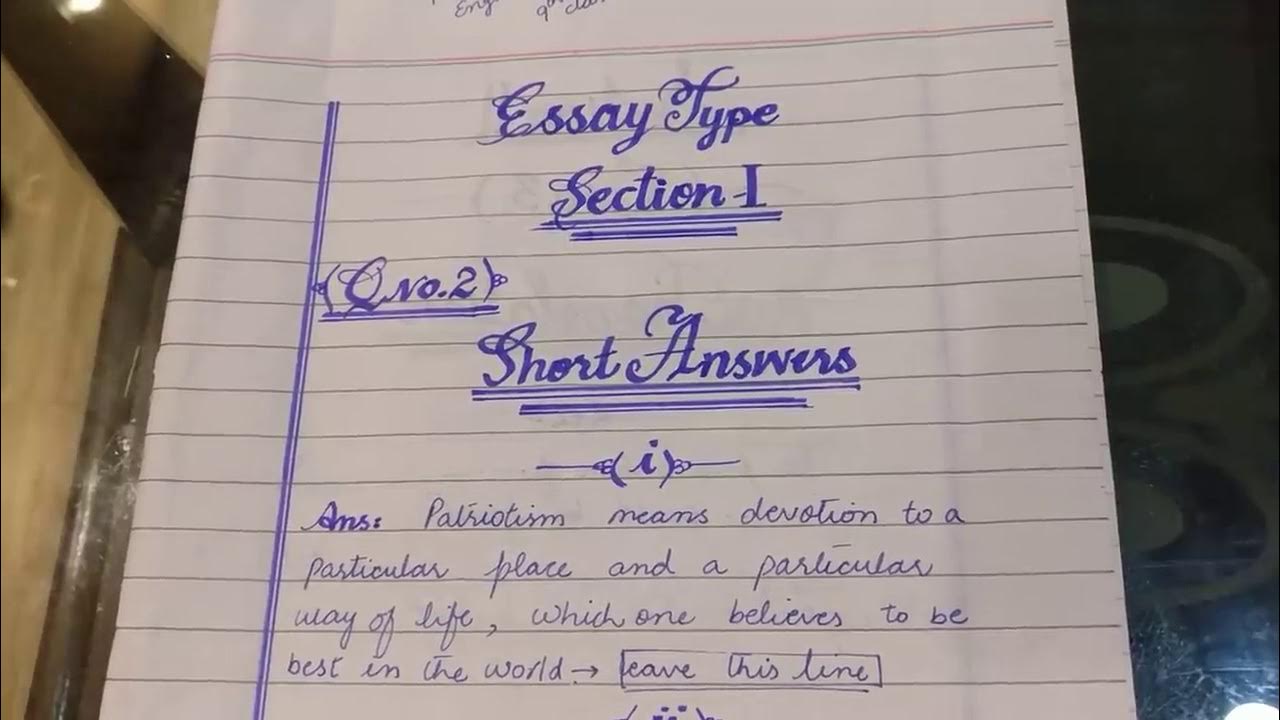 Eng 9th
Essay Type
Section-I
(Q No.2)
Short Answers
(i)
Ans: Patriotism means devotion to a
particular place and a particular
way of life, which one believes to be
best in the world. → leave this line
(ii)